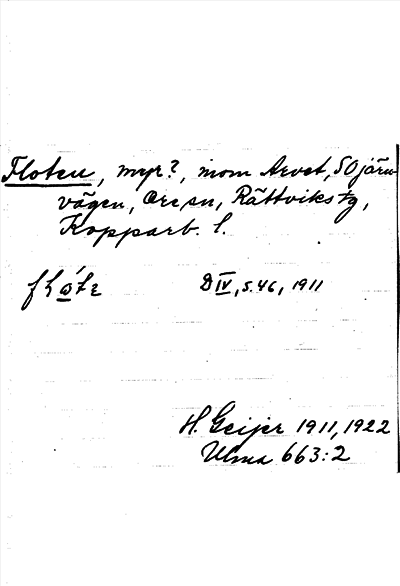 Floten, myr?, inom Arvet, SO järn-
vägen, Ore sn, Rättviks tg,
Kopparb. l.
D IV, s. 46, 1911
H. Geijer 1911, 1922
Ulma 663:2